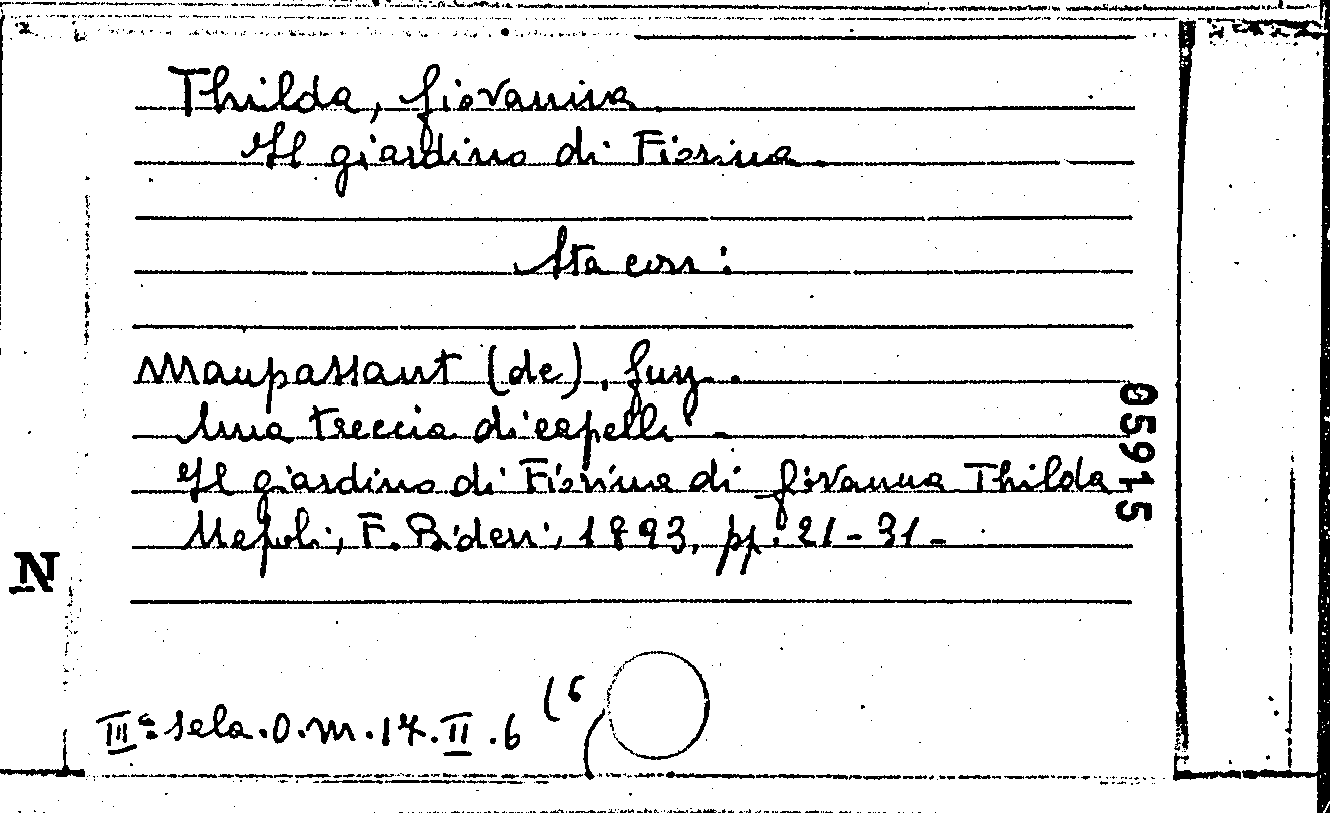 Thilda, Giovanna.
Il giardino di Fiorina.
Sta con:
Maupassant (de), Guy.
Una treccia di capelli -
Il giardino di Fiorina di Giovanna Thilda
Napoli, F. Bideri, 1893, pp. 21-31-
05915
N
IIIª sala.O.M.17.II.6 (6